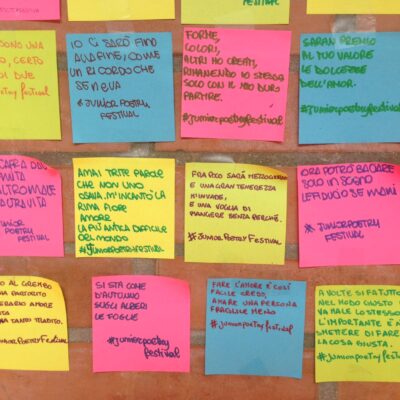 FESTIVAL
SONO UNA
CERTO
DI DUE
poetry festival
IO CI SARÒ FINO
ALLA FINE, COME
UN RICORDO CHE
SE NE VA
# JUNIOR POETRY
FESTIVAL
FORME,
COLORI,
ALTRI NO CREAI,
RIMANENDO LO STESSO
SOLO CON IL MIO DURO
PARTIRE.
#Juniorpoetryfestival
SARAN PREMIO
AL TUO VALORE
LE DOLCEZZE
DELL'AMOR.
#Juniorpoetryfestival
ALTRO MALE
ALTRA VITA
JUNIOR
POETRY
FESTIVAL
AMAI TRITE PAROLE
CHE NON UNO
OSAVA. M'INCANTÒ LA
RIMA FIORE
AMORE
LA PIÙ ANTICA DIFFICILE
DEL MONDO
#JUNIORPOETRYFESTIVAL
FRA POCO SARÀ MEZZOGIORNO
E UNA GRAN TENEREZZA
M'INVADE,
E UNA VOGLIA DI
PIANGERE SENZA PERCHÉ.
#JUNIORPOETRYFESTIVAL
ORA POTRÒ BACIARE
SOLO IN SOGNO
LE TUE MANI
# JUNIORPOETRY
FESTIVAL
AL GREMBO
PARTORITO
AMORE
TANTO
JUNIORPOETRYFESTIVAL
SI STA COME
D'AUTUNNO
SUGLI ALBERI
LE FOGLIE
#Juniorpoetry
festival
FARE L'AMORE È COSÌ
FACILE CREDO,
AMARE UNA PERSONA
FRAGILE MENO
#Juniorpoetryfestival
A VOLTE SI FA TUTTO
NEL MODO GIUSTO E
VA MALE LO STESSO
L'IMPORTANTE È NON
SMETTERE DI FARE
LA COSA GIUSTA.
#Juniorpoetryfestival